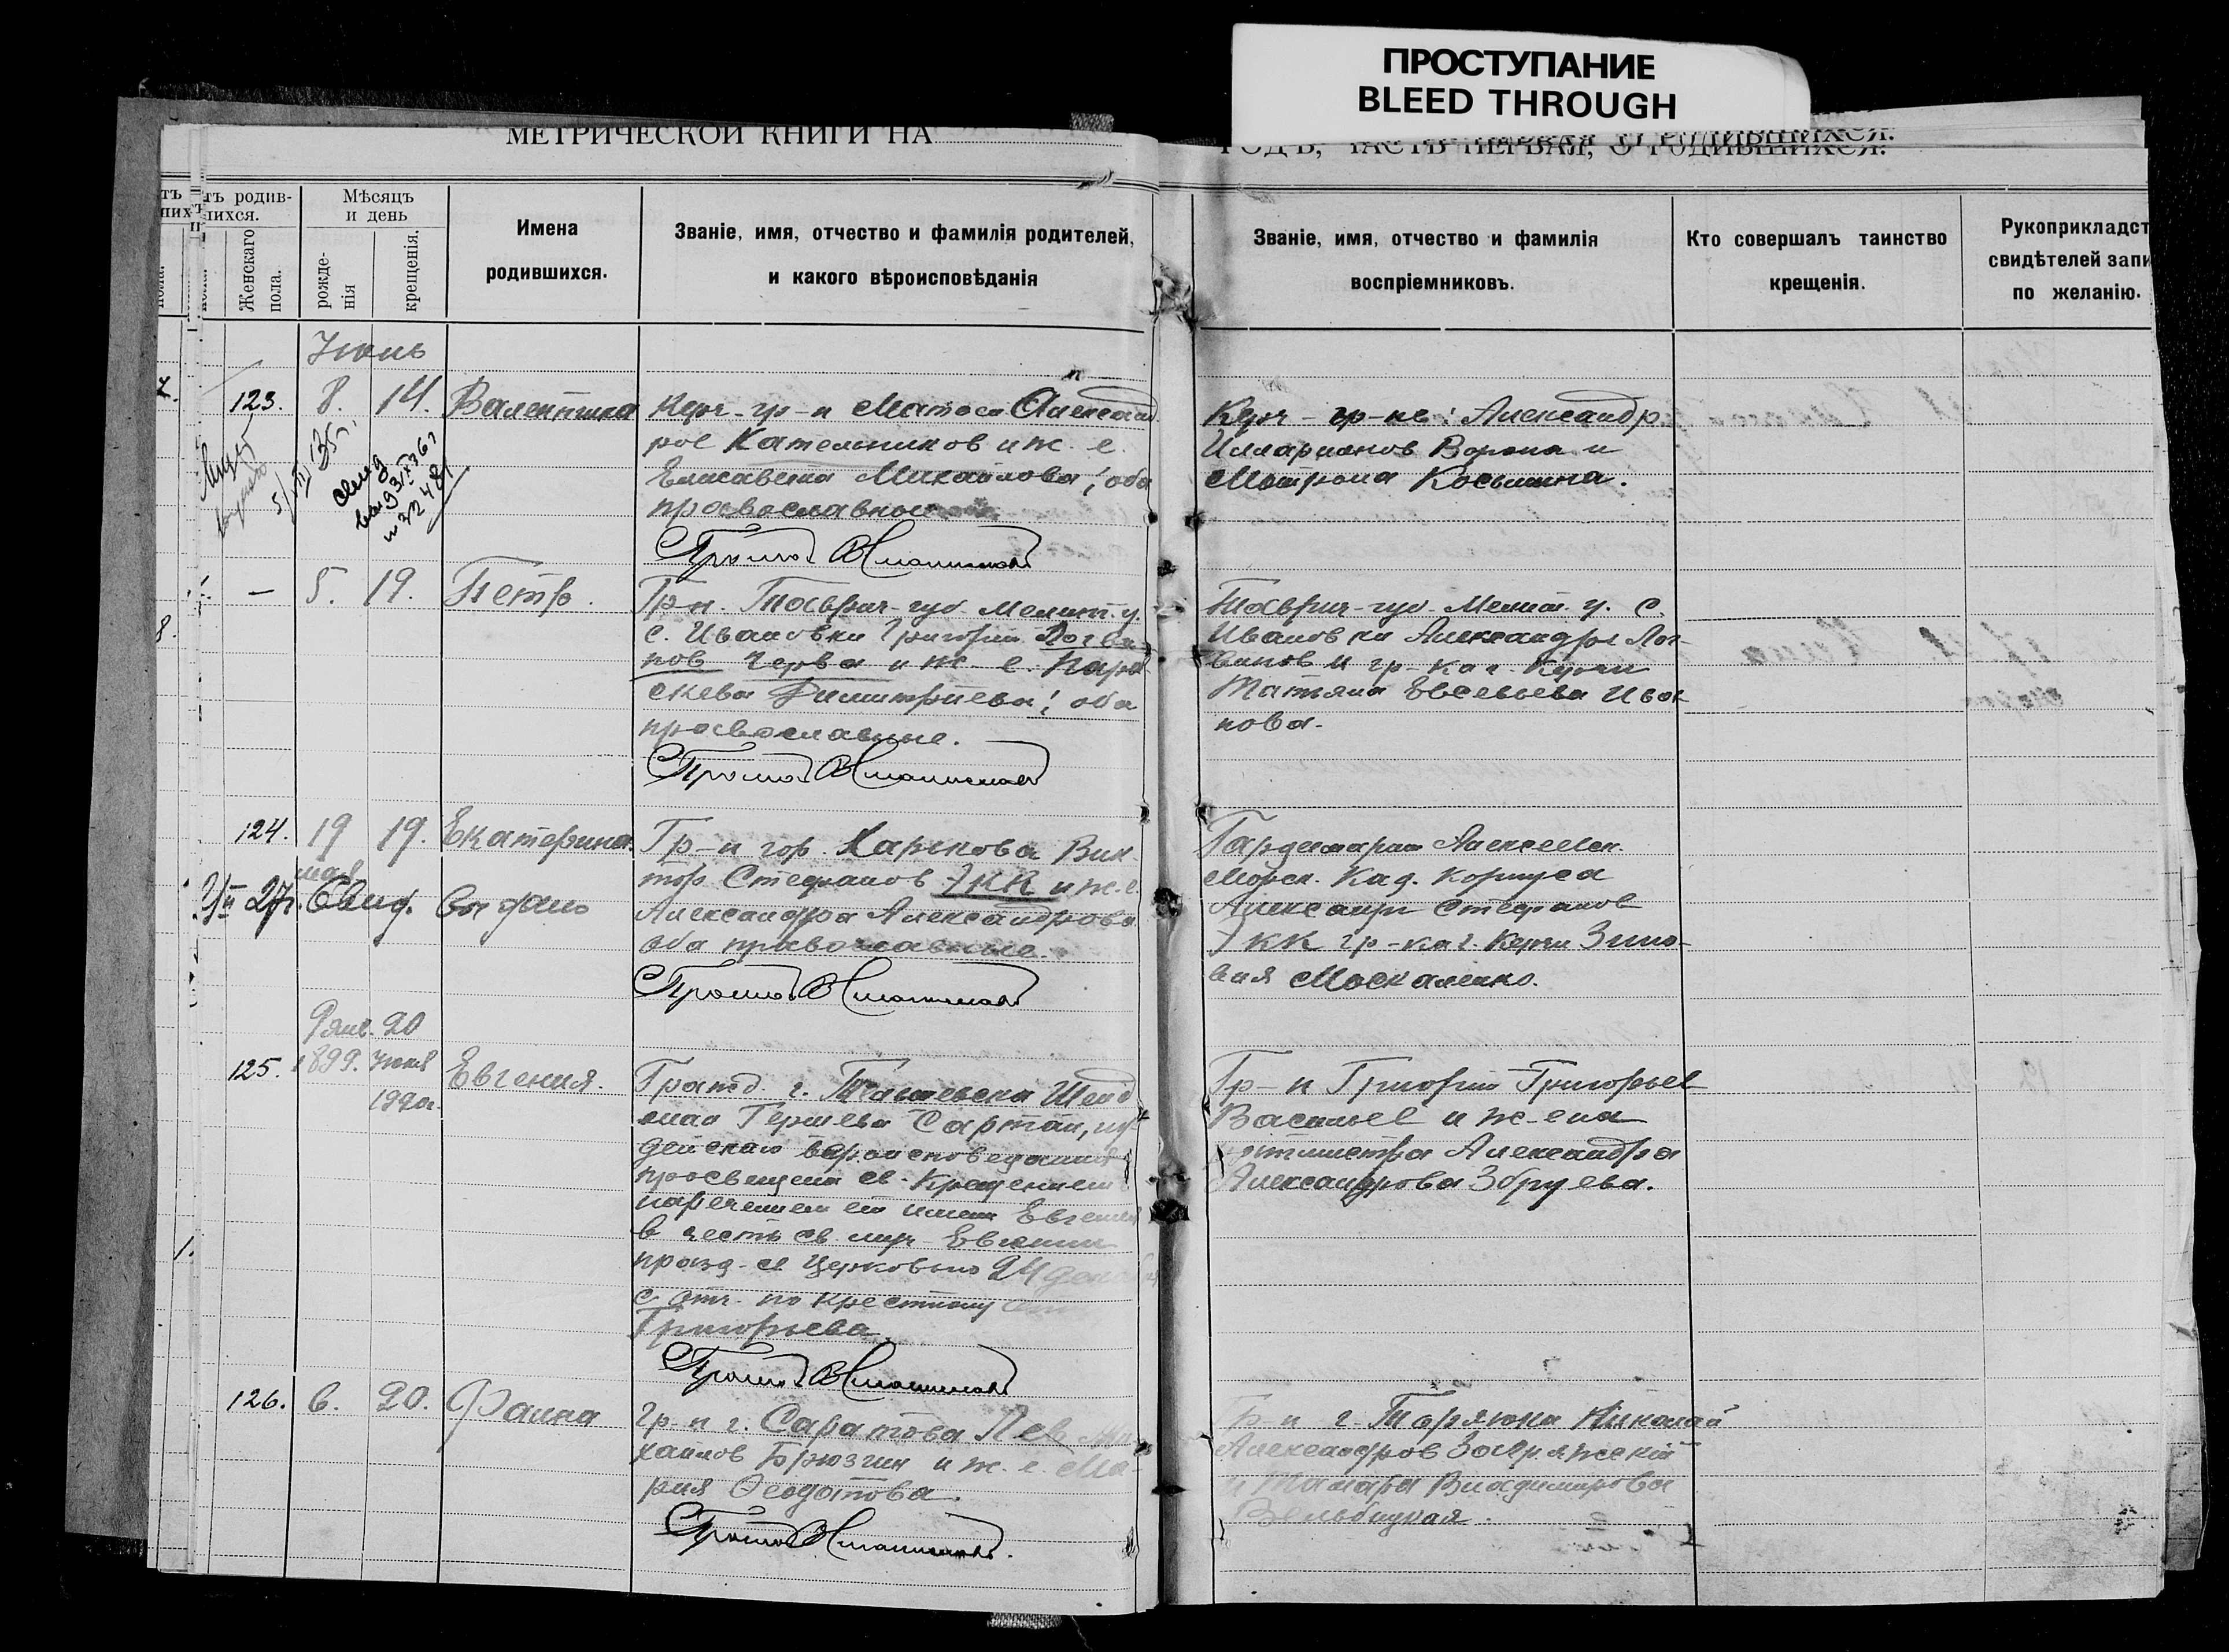 ПРОСТУПАНИЕ
BLEED THROUGH
МЕТРИЧЕСКОЙ КНИГИ НА
ГОДЪ, ЧАСТЬ ПЕРВАЯ, О РОДИВШИХСЯ.
тъ родив-
шихся.
Женскаго пола.
Мѣсяцъ
и день
рожде-
нія
крещенія.
Имена
родившихся.
Званіе, имя, отчество и фамилія родителей,
и какого вѣроисповѣданія
Званіе, имя, отчество и фамилія
воспріемниковъ.
Кто совершалъ таинство
крещенія.
Рукоприкладст
свидѣтелей запи
по желанію.
Июнь
123. 8. 14. Валентина
Керч-гр-н Александ
ров Котельников и ж. е.
Елисавета Михайлова; оба
православные
Керч-гр-не: Александр
Илларионов Ворона и
Матрона Косьмина.
— 5. 19. Петр.
Гр-н. Таврич-губ. Мелит. у.
с. Ивановки Григорий Логви
нов Черва и ж. е. Пара
скева Димитриева; оба
православные.
Таврич-губ. Мелит. у. с.
Ивановки Александр Лог-
винов и гр-ка г. Керчи
Татьяна Евсевьева Ива
нова.
124. 19 мая 19. Екатерина.
27г. Свид. выдано
Гр-н гор. Харькова Вик
тор Стефанов Экк и ж. е.
Александра Александрова
оба православные.
Гардемарин Алексеевск.
Морск. Кад. Корпуса
Александр Стефанов
Экк гр-ка г. Керчи Зино-
вия Москаленко.
125. 9 янв. 1899. 20 Июня 1920г. Евгения.
Гражд. г.
Гершева Сартан, иу
дейского вероисповедания
просвещена св. Крещением
наречением ей имени Евгения
в честь св. муч. Евгении
празд-я Церковью 24 дека
с отч. по крестному
Григорьева.
Гр-н Григорий Григорьев
Васильев и ж-ена
ротмистра Александра
Александрова Збруева.
126. 6. 20. Фаина
Гр-н г. Саратова Лев Ми
хаилов Брюзгин и ж. е. Ма-
рия Феодотова.
Гр-н г. Николай
Александров Загряжский
и Тамара Владимирова
Вельбицкая.